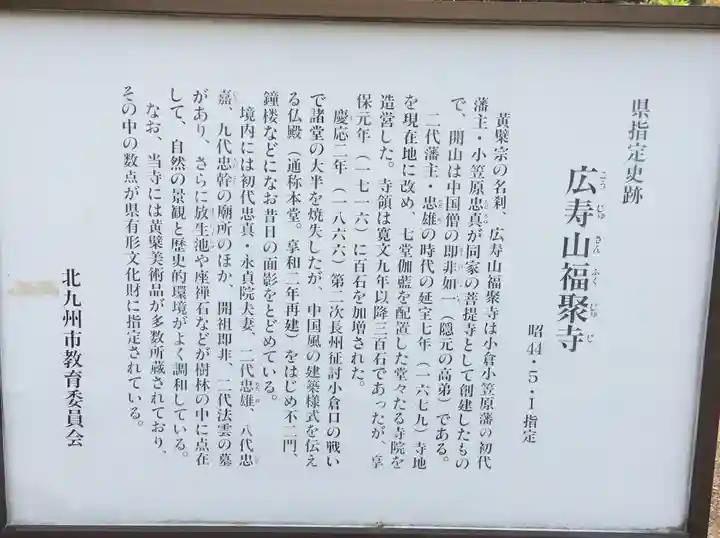 県指定史跡
広寿山福聚寺
こうじゅさんふくじゅじ
昭44・5・1指定
黄檗宗の名刹、広寿山福聚寺は小倉小笠原藩の初代
藩主・小笠原忠真が同家の菩提寺として創建したもの
で、開山は中国僧の即非如一（隠元の高弟）である。
二代藩主・忠雄の時代の延宝七年（一六七九）寺地
を現在地に改め、七堂伽藍を配置した堂々たる寺院を
造営した。寺領は寛文九年以降三百石であったが、享
保元年（一七一六）に百石を加増された。
慶応二年（一八六六）第二次長州征討小倉口の戦い
で諸堂の大半を焼失したが、中国風の建築様式を伝え
る仏殿（通称本堂。享和二年再建）をはじめ不二門、
鐘楼などになお昔日の面影をとどめている。
境内には初代忠真・永貞院夫妻、二代忠雄、八代忠
嘉、九代忠幹の廟所のほか、開祖即非、二代法雲の墓
があり、さらに放生池や座禅石などが樹林の中に点在
して、自然の景観と歴史的環境がよく調和している。
なお、当寺には黄檗美術品が多数所蔵されており、
その中の数点が県有形文化財に指定されている。
北九州市教育委員会